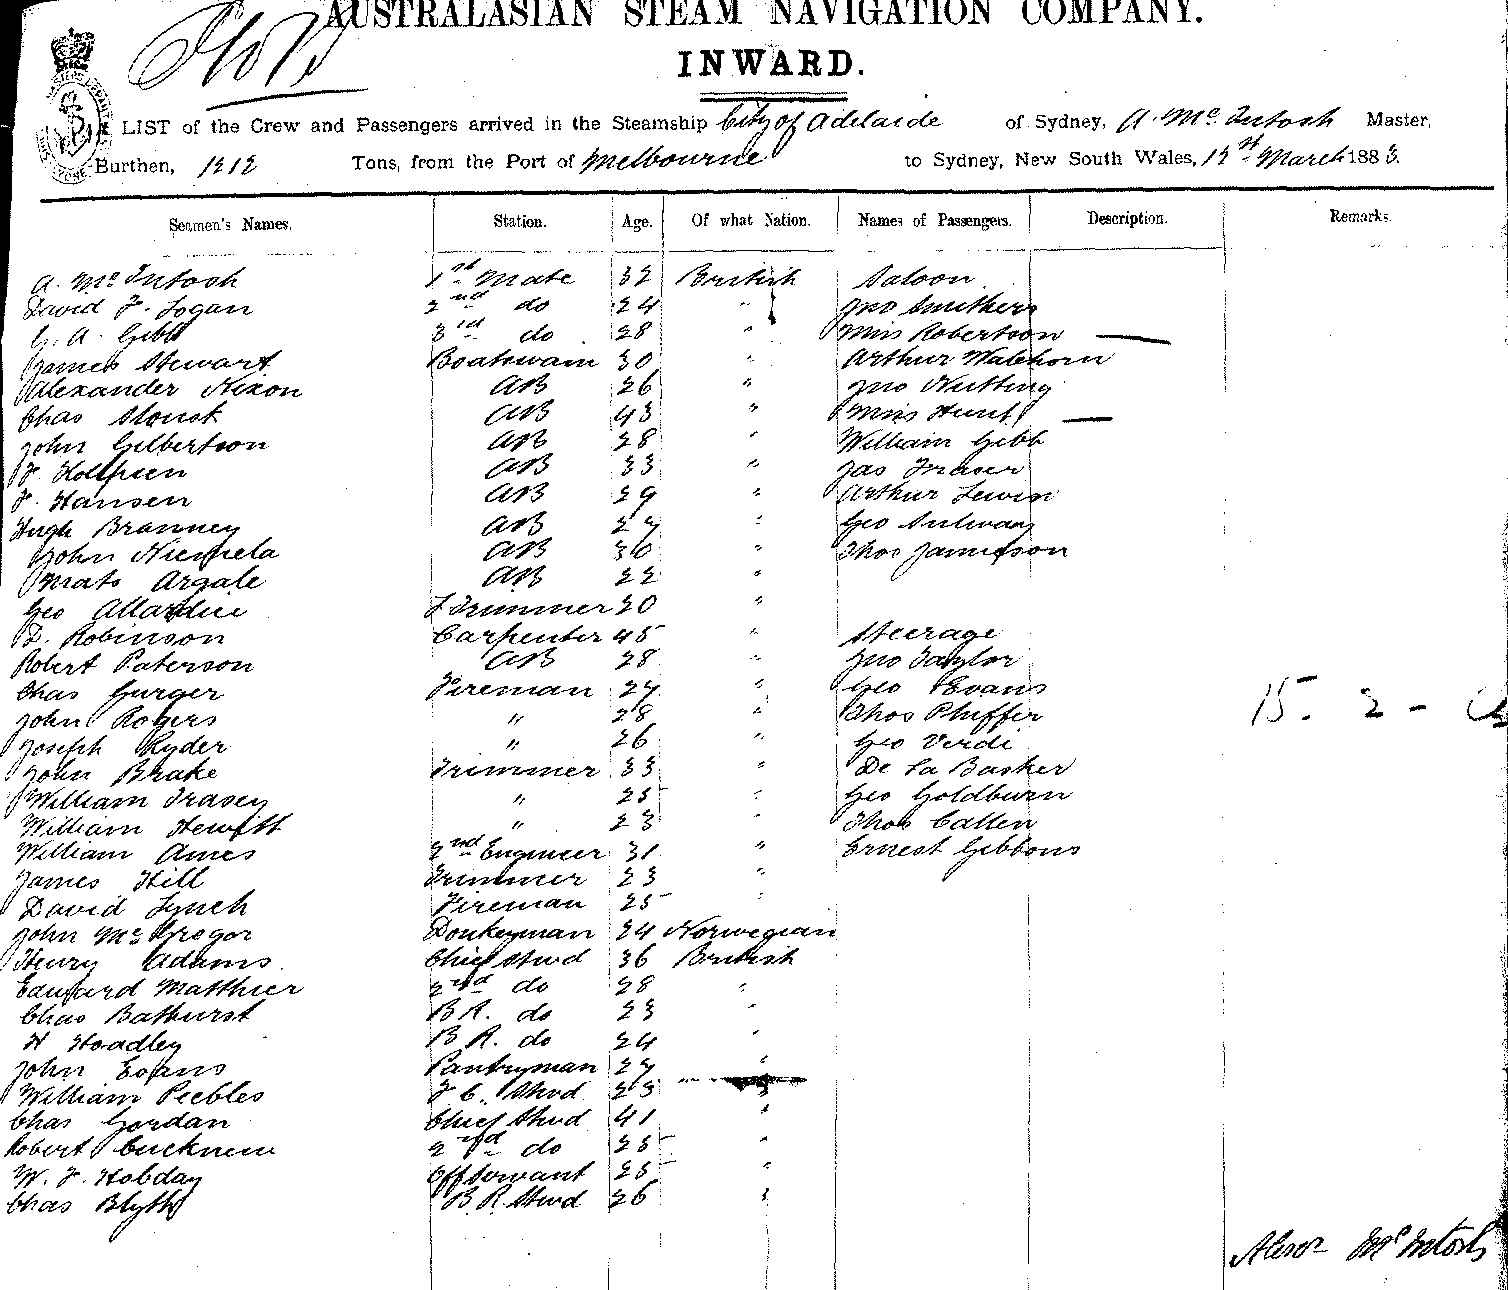 AUSTRALASIAN STEAM NAVIGATION COMPANY.
INWARD.
LIST of the Crew and Passengers arrived in the Steamship City of Adelaide of Sydney, A. Mc Intosh Master,
Burthen, 1212 Tons, from the Port of Melbourne to Sydney, New South Wales, 12st March 1883.
Seamen's Names. Station. Age. Of what Nation. Names of Passengers. Description. Remarks.
A. Mc Intosh 1st Mate 32 British Saloon
David F. Logan 2nd do 24 " Jno Smithers
G. A. Gibb 3rd do 28 " Miss Robertson —
James Stewart Boatswain 30 " Arthur Walehorn
Alexander Nixon AB 26 " Jno Nutting
Chas AB 43 " Miss Hunt —
John Gilbertson AB 28 " William Gibb
F. AB 33 " Jas Fraser
F. Hansen AB 29 " Arthur Lewin
Hugh Branney AB 27 " Geo Sulway
John Niemela AB 30 " Thos Jamieson
Mats Argale AB 22 "
Geo Allardice F Trimmer 20 "
D. Robinson Carpenter 45 " Steerage
Robert Paterson AB 28 " Jno Taylor
Chas Gurger Fireman 27 " Geo Evans
John Rogers " 28 " Thos Phiffer
Joseph Ryder " 26 " Geo Verdi
John Brake Trimmer 33 " De La Basher
William Trasey " 25 " Geo Goldburn
William Hewitt " 23 " Thos Callen
William Ames 2nd Engineer 31 " Ernest Gibbons
James Hill Trimmer 23 "
David Lynch Fireman 25 "
John McGregor Donkeyman 24 Norwegian
Henry Adams Chief Stwd 36 British
Edward Matthier 2nd do 28 "
Chas Bathurst B R. do 23 "
H Hoadley B R. do 24 "
John Evans Pantryman 27 "
William Peebles F C. Stwd 23 "
Chas Gordan Chief Stwd 41 "
Robert Cucknew 2nd do 25 "
W. F. Hobday Off Servant 25 "
Chas Blyth B. R. Stwd 26 "
15. 2 -
Alexr McIntosh